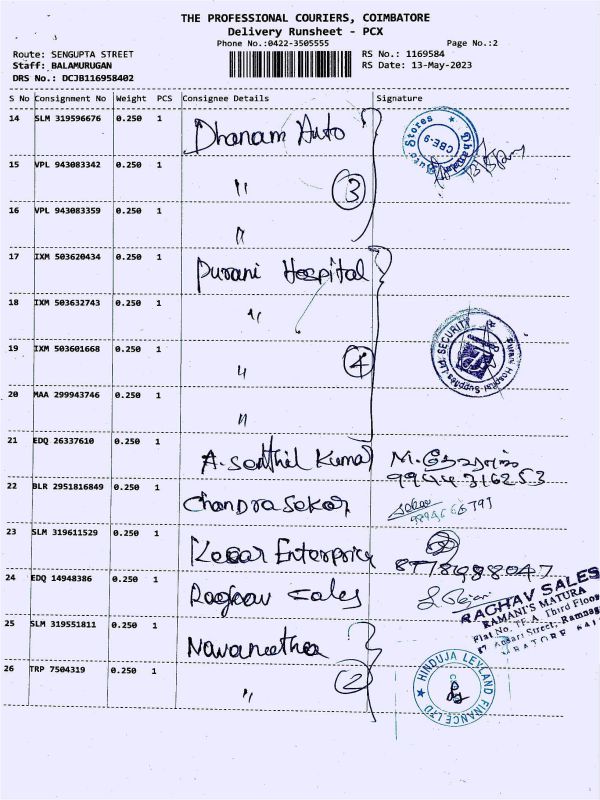 THE PROFESSIONAL COURIERS, COIMBATORE
Delivery Runsheet - PCX
Phone No.:0422-3505555 Page No.:2
Route: SENGUPTA STREET RS No.: 1169584
Staff: BALAMURUGAN RS Date: 13-May-2023
DRS No.: DCJB116958402
S No Consignment No Weight PCS Consignee Details Signature
14 SLM 319596676 0.250 1 Dhanam Auto
Auto Stores * Dhanam CBE-9
15 VPL 943083342 0.250 1 " 3
16 VPL 943083359 0.250 1 "
17 IXM 503620434 0.250 1 Purani Hospital
18 IXM 503632743 0.250 1 "
Purani Hospital Supplies Ltd. SECURITY
19 IXM 503601668 0.250 1 " 4
20 MAA 299943746 0.250 1 "
21 EDQ 26337610 0.250 1 A. Senthil Kumar
9944316253
22 BLR 2951816849 0.250 1 Chandra Sekar
23 SLM 319611529 0.250 1 Kesar Enterprice
24 EDQ 14948386 0.250 1 Raghav Sales
RAGHAV SALES
RAMANI'S MATURA
Flat No. TF-A, Third Floor
25 SLM 319551811 0.250 1 Navaneetha
26 TRP 7504319 0.250 1 " 2
HINDUJA LEYLAND FINANCE LTD